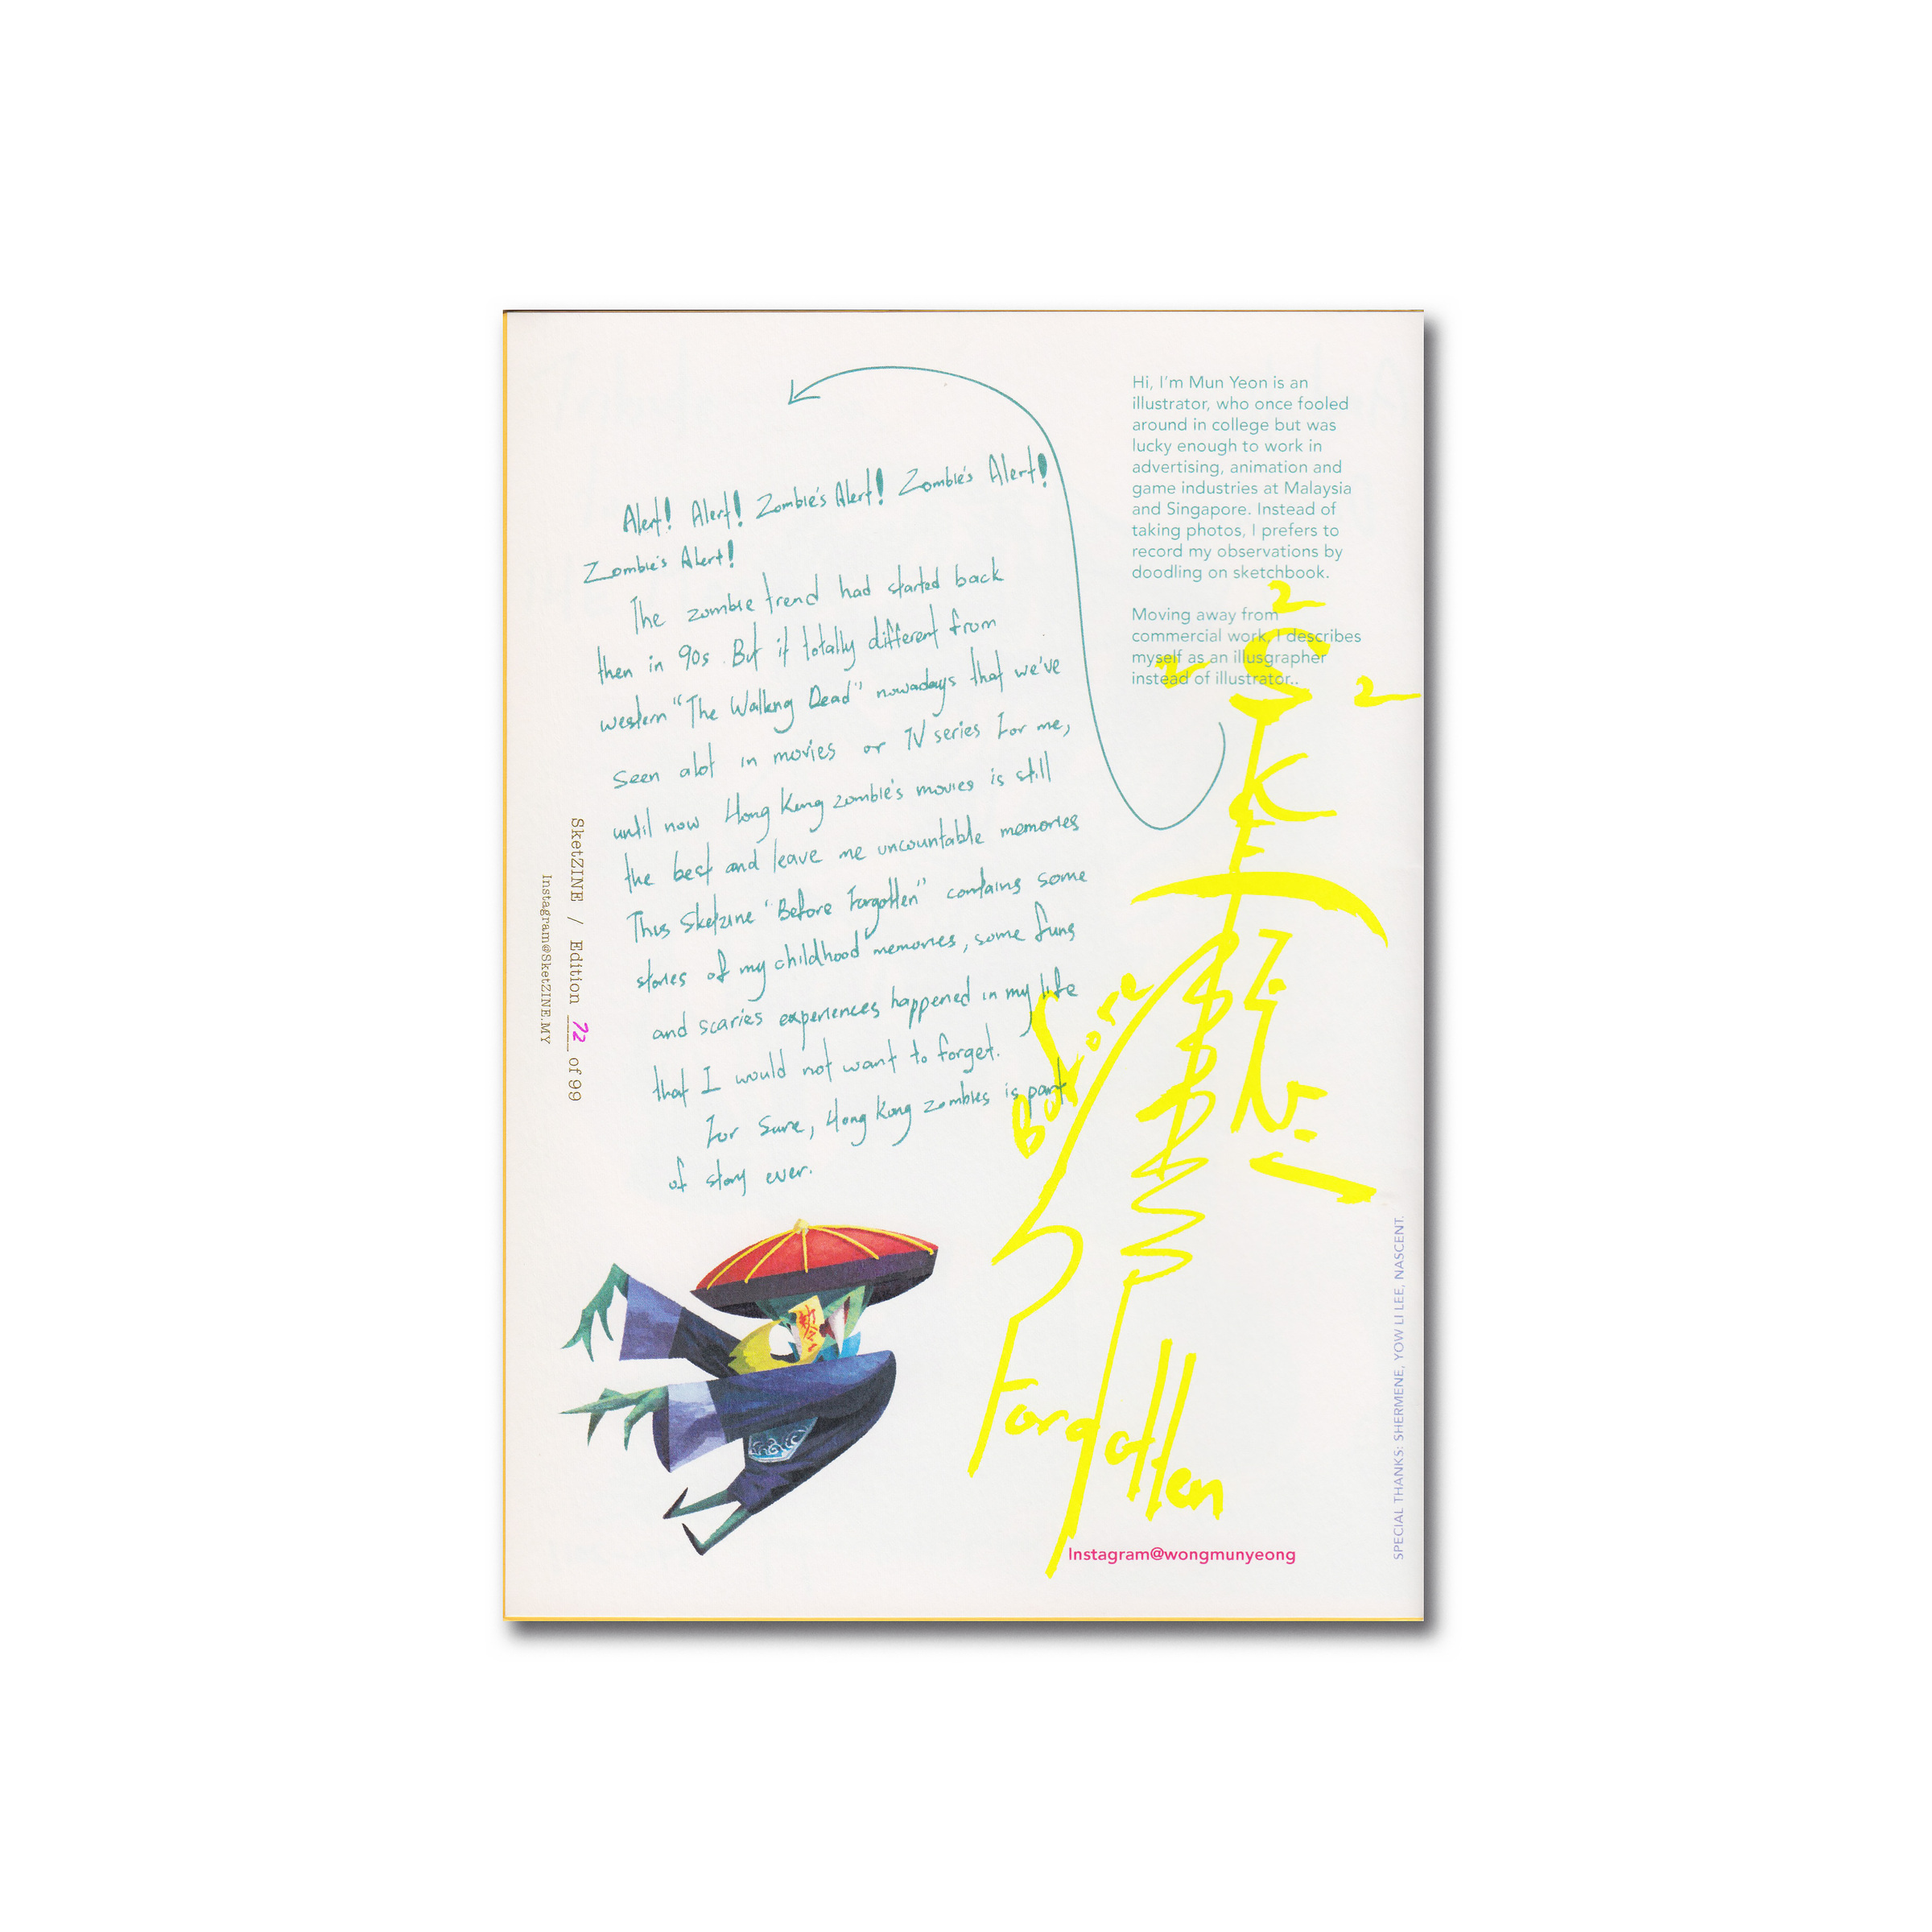 Hi, I'm Mun Yeon is an
illustrator, who once fooled
around in college but was
lucky enough to work in
advertising, animation and
game industries at Malaysia
and Singapore. Instead of
taking photos, I prefers to
record my observations by
doodling on sketchbook.
Moving away from
commercial work, I describes
myself as an illusgrapher
instead of illustrator..
Alert! Alert! Zombie's Alert! Zombie's Alert!
Zombie's Alert!
The zombie trend had started back
then in 90s. But it totally different from
western "The Walking Dead" nowadays that we've
seen alot in movies or TV series For me,
until now Hong Kong zombie's movies is still
the best and leave me uncountable memories
Thus Sketzine "Before Forgotten" contains some
stories of my childhood memories, some funs
and scaries experiences happened in my life
that I would not want to forget.
For Sure, Hong Kong zombies is part
of story ever.
SketZINE / Edition 72 of 99
Instagram@SketZINE.MY
SKET
Forgotten
Instagram@wongmunyeong
SPECIAL THANKS: SHERMENE, YOW LI LEE, NASCENT.